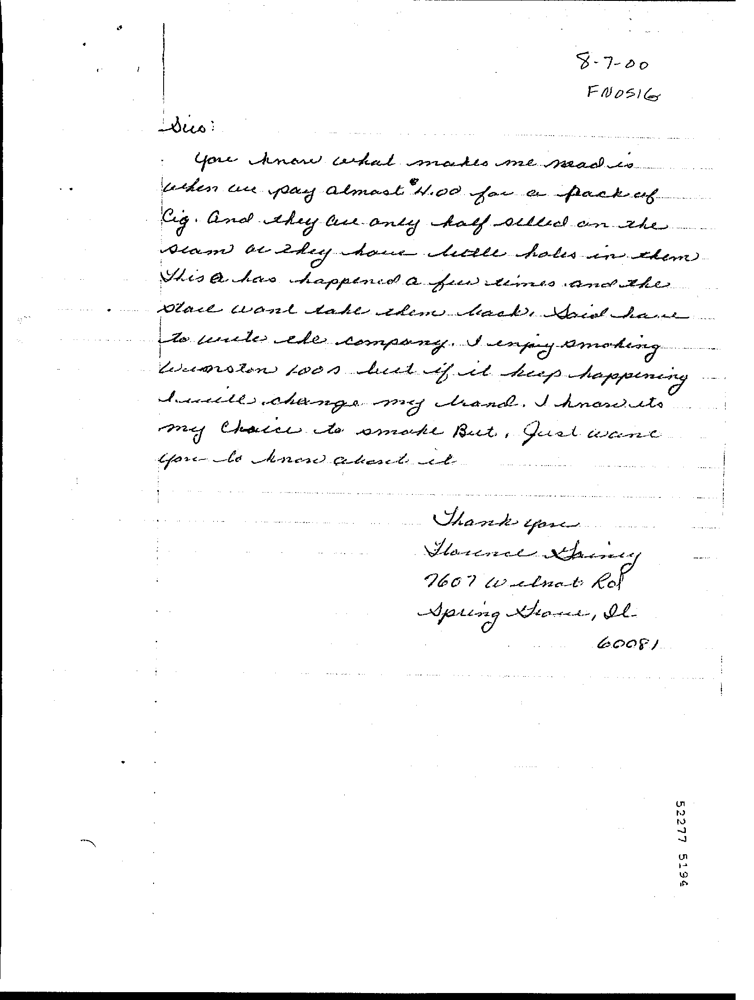 8-7-00
FN0516
Sirs:
You know what makes me mad is
when we pay almost $4.00 for a pack of
Cig. And they are only half selled on the
seam or they have little holes in them
This has happened a few times and the
store wont take them back. Said have
to write the company. I enjoy smoking
Winston 100s but if it keep happening
I will change my brand. I know its
my Choice to smoke But, Just want
you to know about it
Thank you
Florence Gainey
7607 Wilnot Rd
Spring Grove, Il.
60081
52277 5194